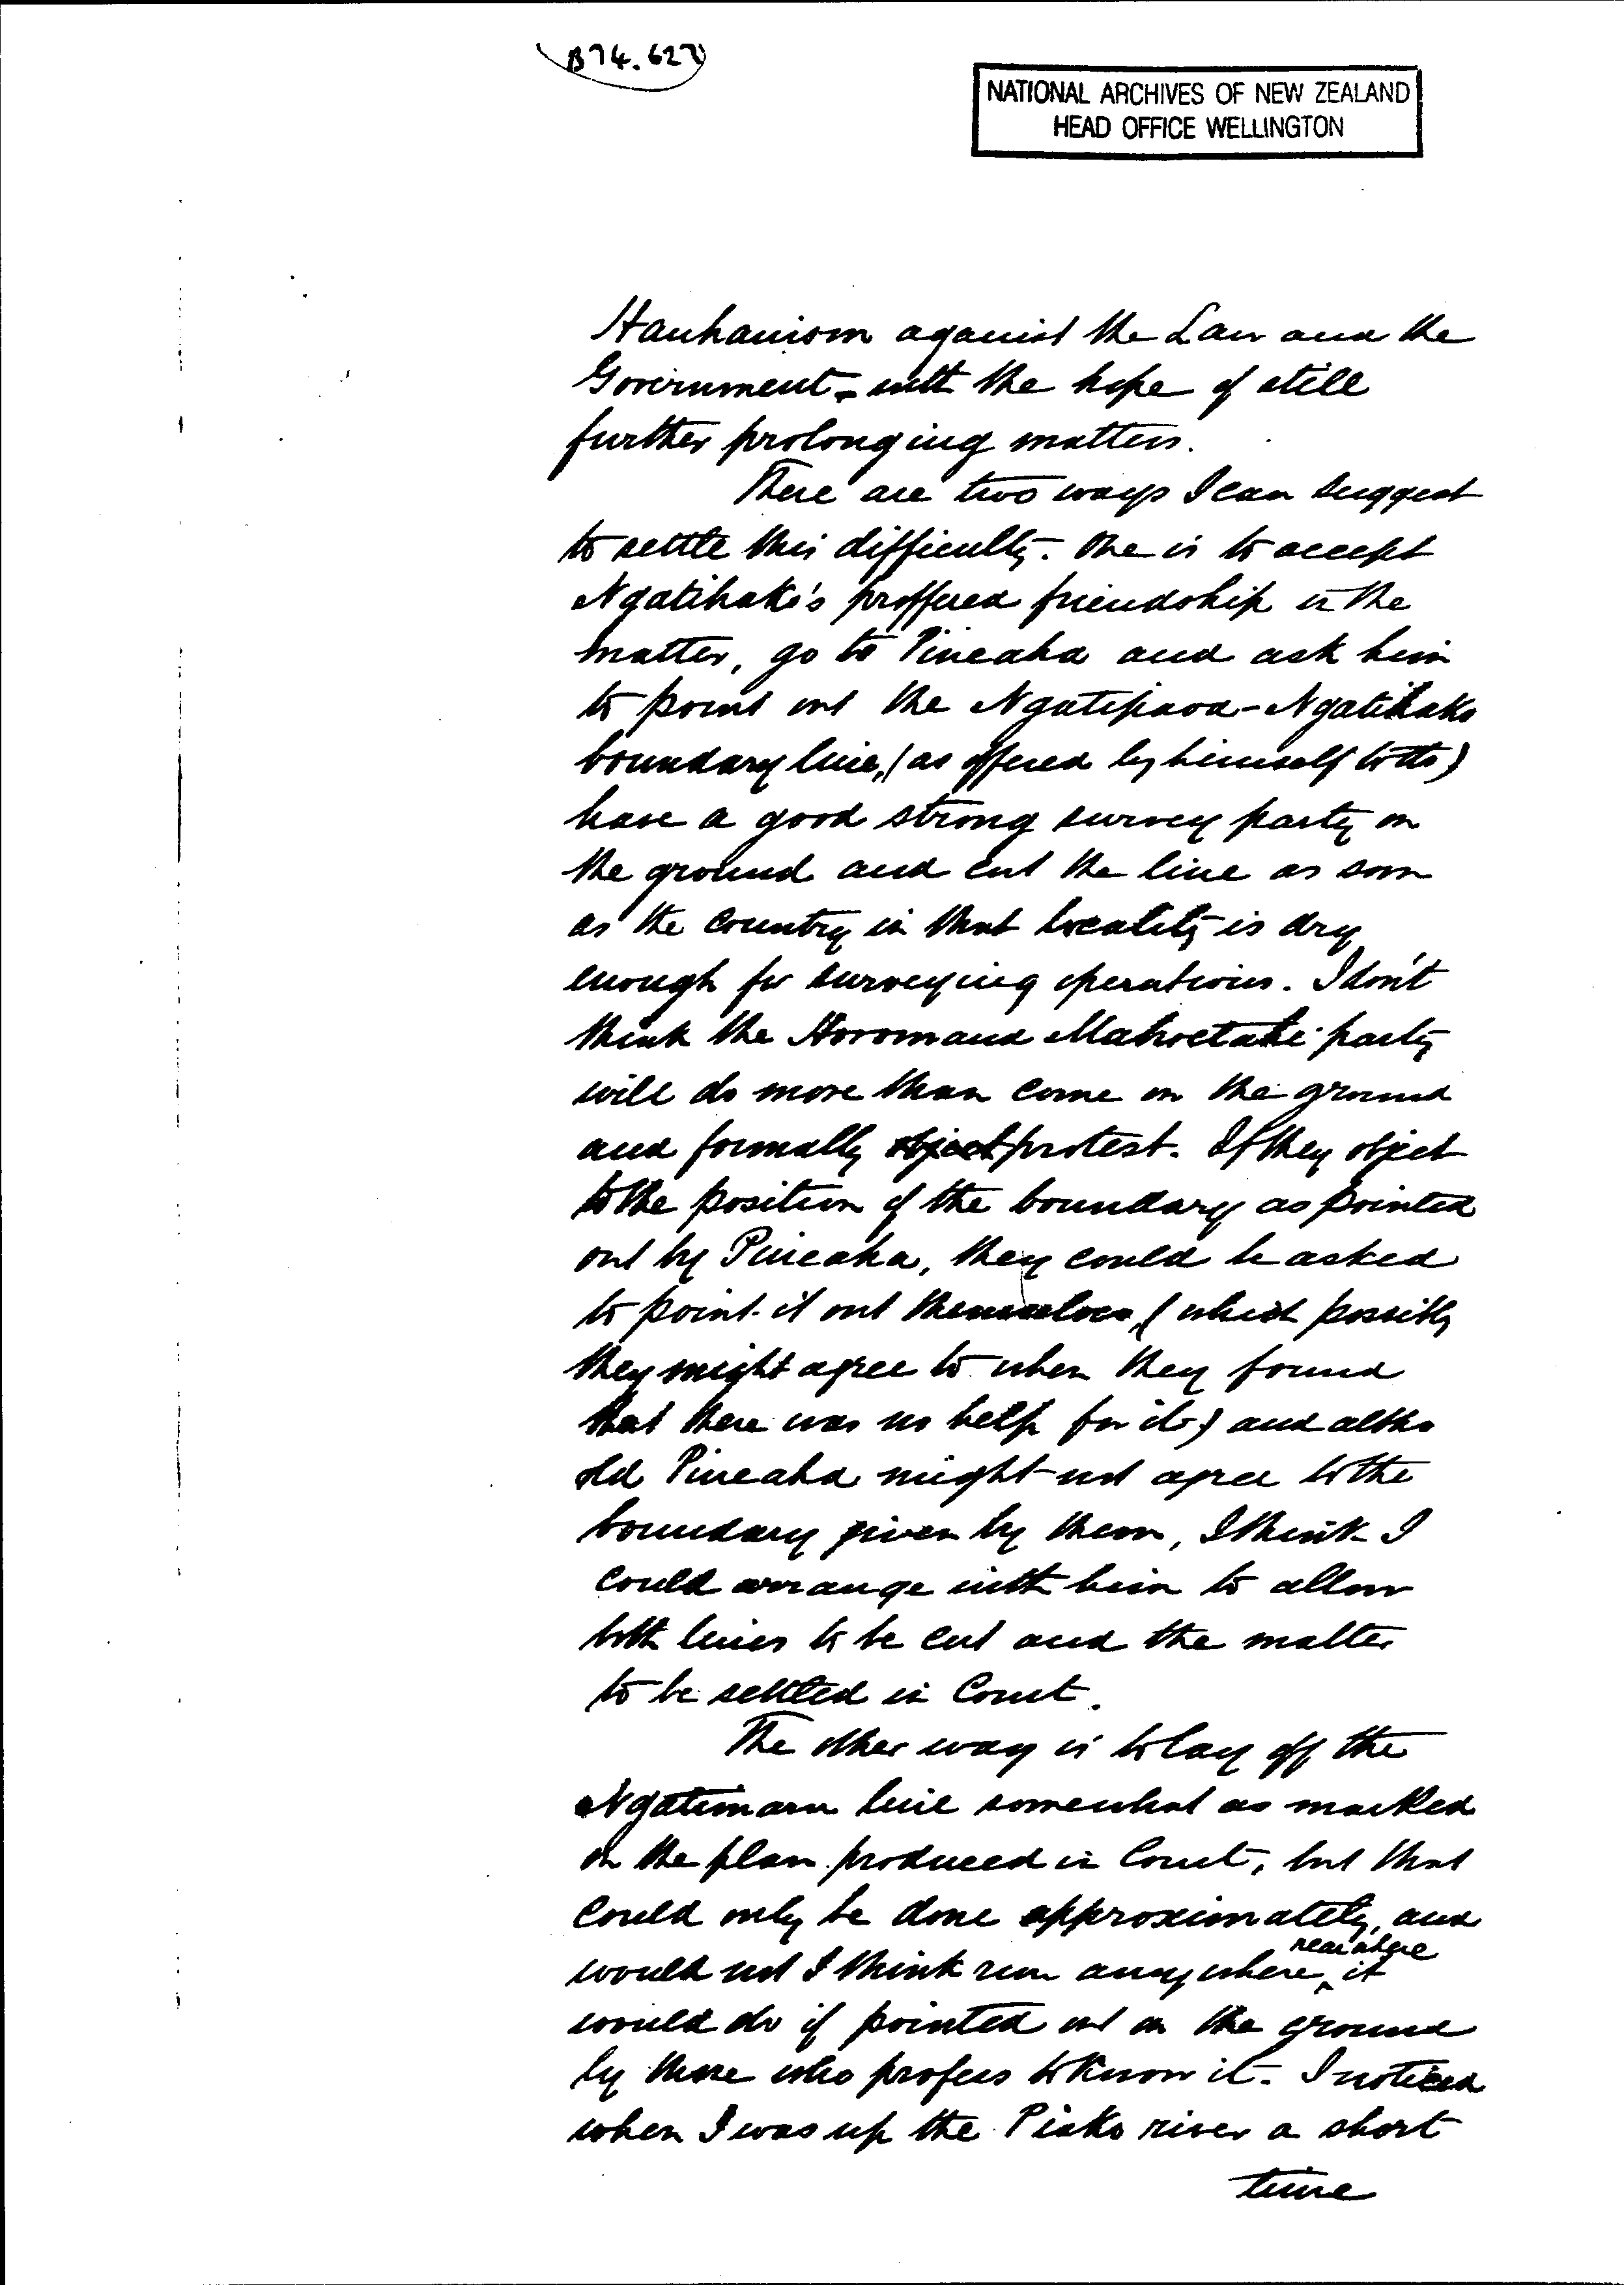 B74.627
NATIONAL ARCHIVES OF NEW ZEALAND
HEAD OFFICE WELLINGTON
Hauhauism against the Law and the
Government - with the hope of still
further prolonging matters.
There are two ways I can suggest
to settle this difficulty. One is to accept
Ngatihako's proffered friendship in the
matter, go to Pineaha and ask him
to point out the Ngatipaoa-Ngatihako
boundary line, (as offered by himself to do)
have a good strong survey party on
the ground and cut the line as soon
as the country in that locality is dry
enough for surveying operations. I don't
think the Horomaua Mahoetahi party
will do more than come on the ground
and formally object protest. If they object
to the position of the boundary as pointed
out by Pineaha, they could be asked
to point it out themselves, (which possibly
they might agree to when they found
that there was no help for it) and altho
old Pineaha might not agree to the
boundary given by them, I think I
could arrange with him to allow
both lines to be cut and the matter
to be settled in Court.
The other way is to lay off the
Ngatimaru line somewhat as marked
on the plan produced in Court, but that
could only be done approximately, and
would not I think run anywhere near where it
would do if pointed out on the ground
by those who profess to know it. I noticed
when I was up the Piako river a short
time